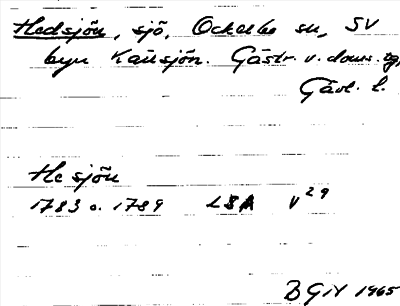 Hedsjön, sjö, Ockelbo sn, SV
byn Kausjön. Gästr. v. doms. tg,
Gävl. l.
He sjön
1783 o. 1789 LSA V29
BGN 1965